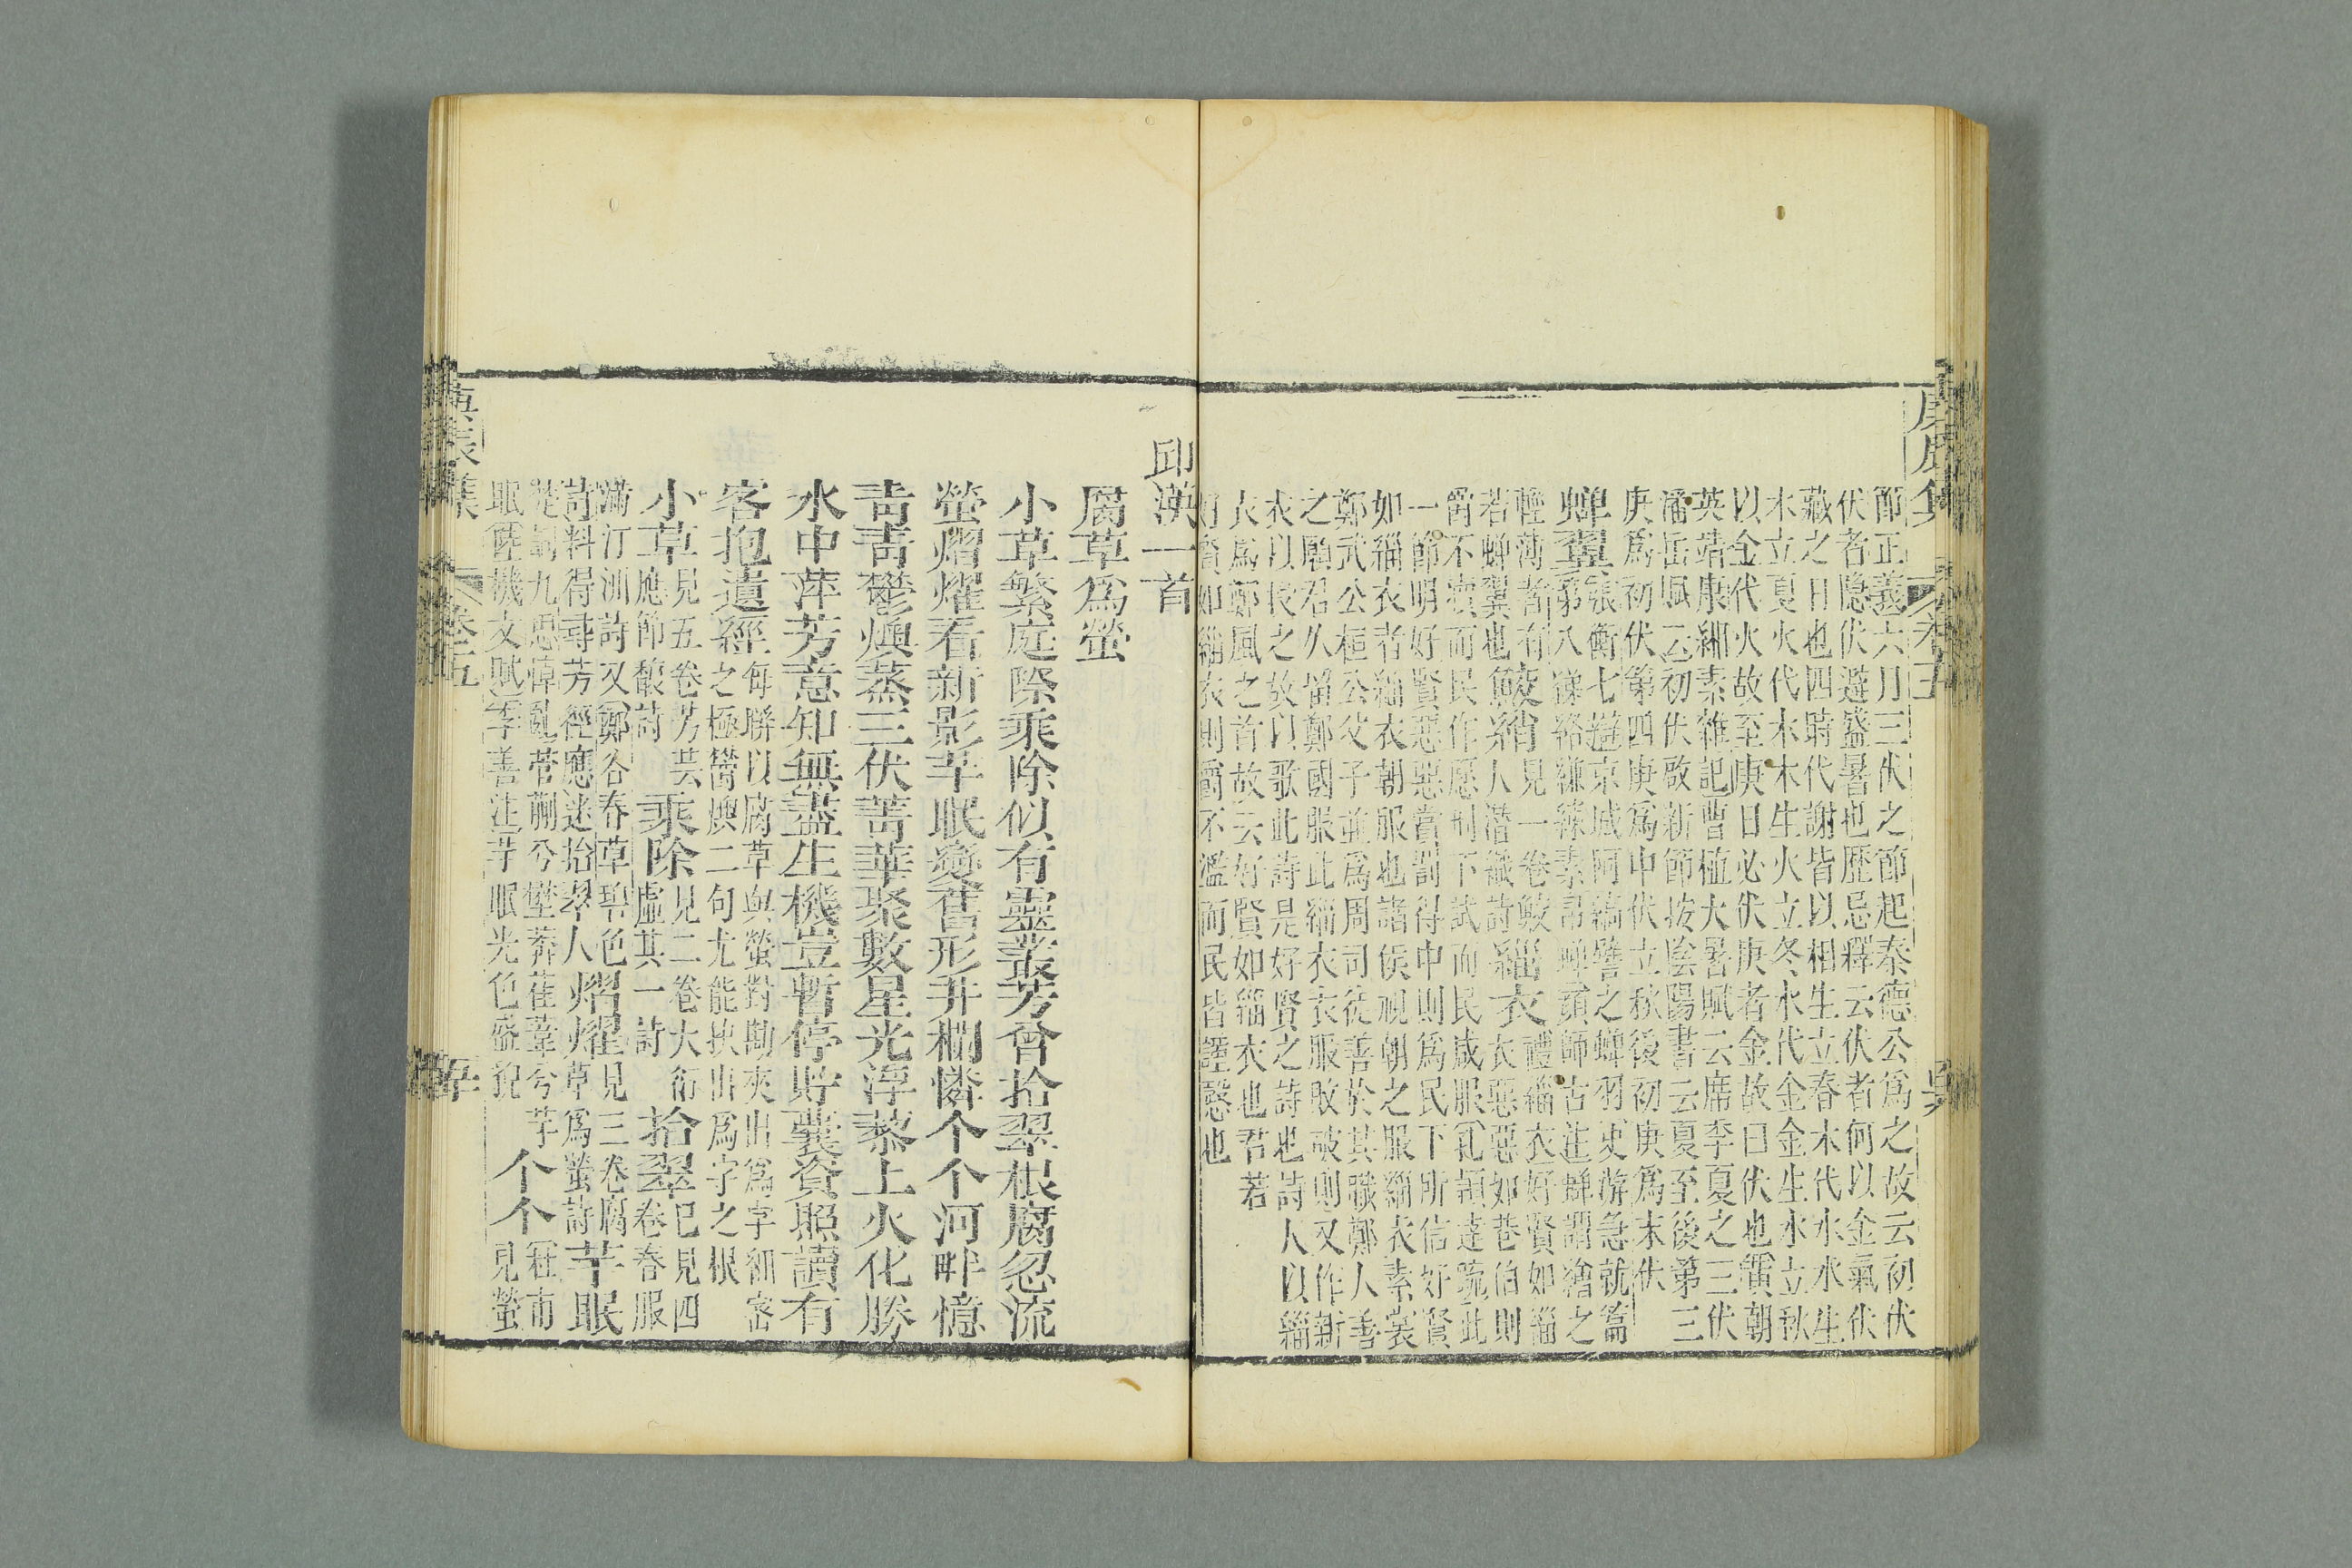 庚辰集
卷五
節正義六月三伏之節起秦德公爲之故云初伏
伏者隱伏避盛暑也歷忌釋云伏者何以金氣伏
藏之日也四時代謝皆以相生立春木代水水生
木立夏火代木木生火立冬水代金金生水立秋
以金代火故至庚日必伏庚者金故曰伏也黃朝
英靖康緗素雜記曹植大暑賦云席季夏之三伏
潘岳賦云初伏啟新節按陰陽書云夏至後第三
庚爲初伏第四庚爲中伏立秋後初庚爲末伏
蟬翼
張衡七辯京城阿縞譬之蟬羽史游急就篇
第八綈絡縑練素帛蟬顏師古注蟬謂繒之
輕薄者有
若蟬翼也
鮫綃
見一卷鮫
人潛織詩
緇衣
禮緇衣好賢如緇
衣惡惡如巷伯則
爵不瀆而民作愿刑不試而民咸服孔穎達疏此
一節明好賢惡惡當罰得中則爲民下所信好賢
如緇衣者緇衣朝服也諸侯視朝之服緇衣素裳
鄭武公桓公父子並爲周司徒善於其職鄭人善
之願君久留鄭國服此緇衣衣服敗破則又作新
衣以長之故以歌此詩是好賢之詩也詩人以緇
衣爲鄭風之首故云好賢如緇衣也君若
好賢如緇衣則爵不濫而民皆謹愨也
邱漢一首
腐草爲螢
小草繁庭際乘除似有靈叢芳曾拾翠根腐忽流
螢熠燿看新影芊眠變舊形井欄憐个个河畔憶
青青鬱燠蒸三伏菁華聚數星光浮藜上火化勝
水中萍芳意知無盡生機豈暫停貯囊資照讀有
客抱遺經
每聯以腐草與螢對勘夾出爲字細密
之極鬱燠二句尤能抉出爲字之根
小草
見五卷芳芸
應節馥詩
乘除
見二卷大衍
虛其一詩
拾翠
已見四
卷春服
滿汀洲詩又鄭谷春草碧色
詩料得尋芳徑應迷拾翠人
熠燿
見三卷腐
草爲螢詩
芊眠
楚詞九思悼亂菅蒯兮壄莽雚葦兮芊
眠陸機文賦李善注芊眠光色盛貌
个个
見螢
庚辰集
卷五